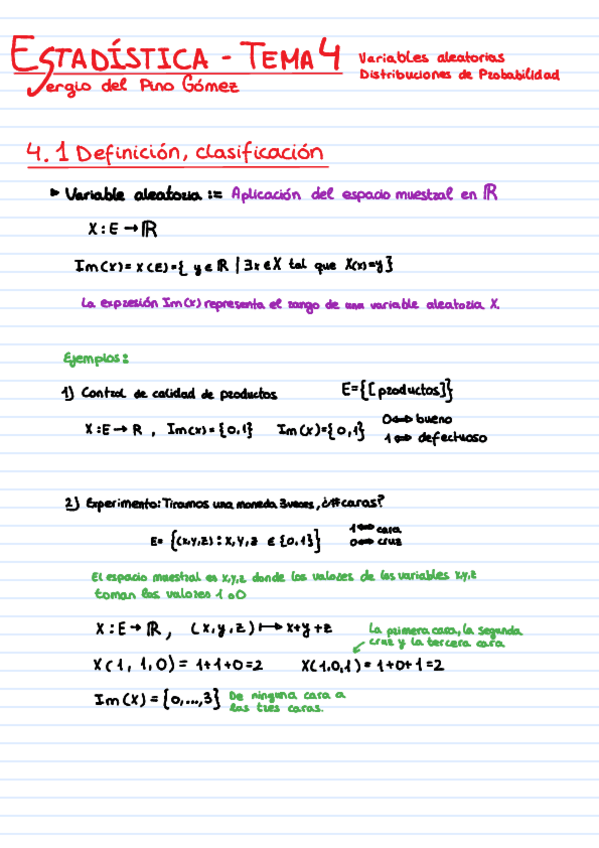 ESTADÍSTICA - TEMA 4 Variables aleatorias
Distribuciones de Probabilidad
Sergio del Pino Gómez
4.1 Definición, clasificación
▸ Variable aleatoria := Aplicación del espacio muestral en ℝ
X: E → ℝ
Im(X) = X(E) = { y ∈ ℝ | ∃x ∈ X tal que X(x)=y }
La expresión Im(X) representa el rango de una variable aleatoria X.
Ejemplos:
1) Control de calidad de productos E={[productos]}
X: E → R , Im(X) = {0,1} Im(X) = {0,1} 0 ⟺ bueno
1 ⟺ defectuoso
2) Experimento: Tiramos una moneda 3 veces, ¿#caras?
E= {(x,y,z) : x,y,z ∈ {0,1}} 1 ⟺ cara
0 ⟺ cruz
El espacio muestral es x,y,z donde los valores de las variables x,y,z
toman los valores 1 o 0
X: E → ℝ, (x,y,z) ⟼ x+y+z
La primera cara, la segunda
cruz y la tercera cara
X(1,1,0) = 1+1+0=2 X(1,0,1) = 1+0+1=2
Im(X) = {0,...,3} De ninguna cara a
las tres caras.